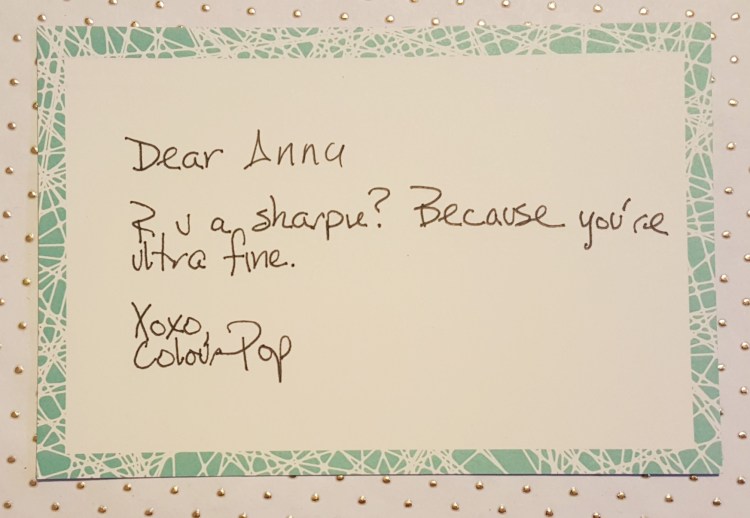 Dear Anna
R u a sharpie? Because you're
ultra fine.
Xoxo,
ColourPop